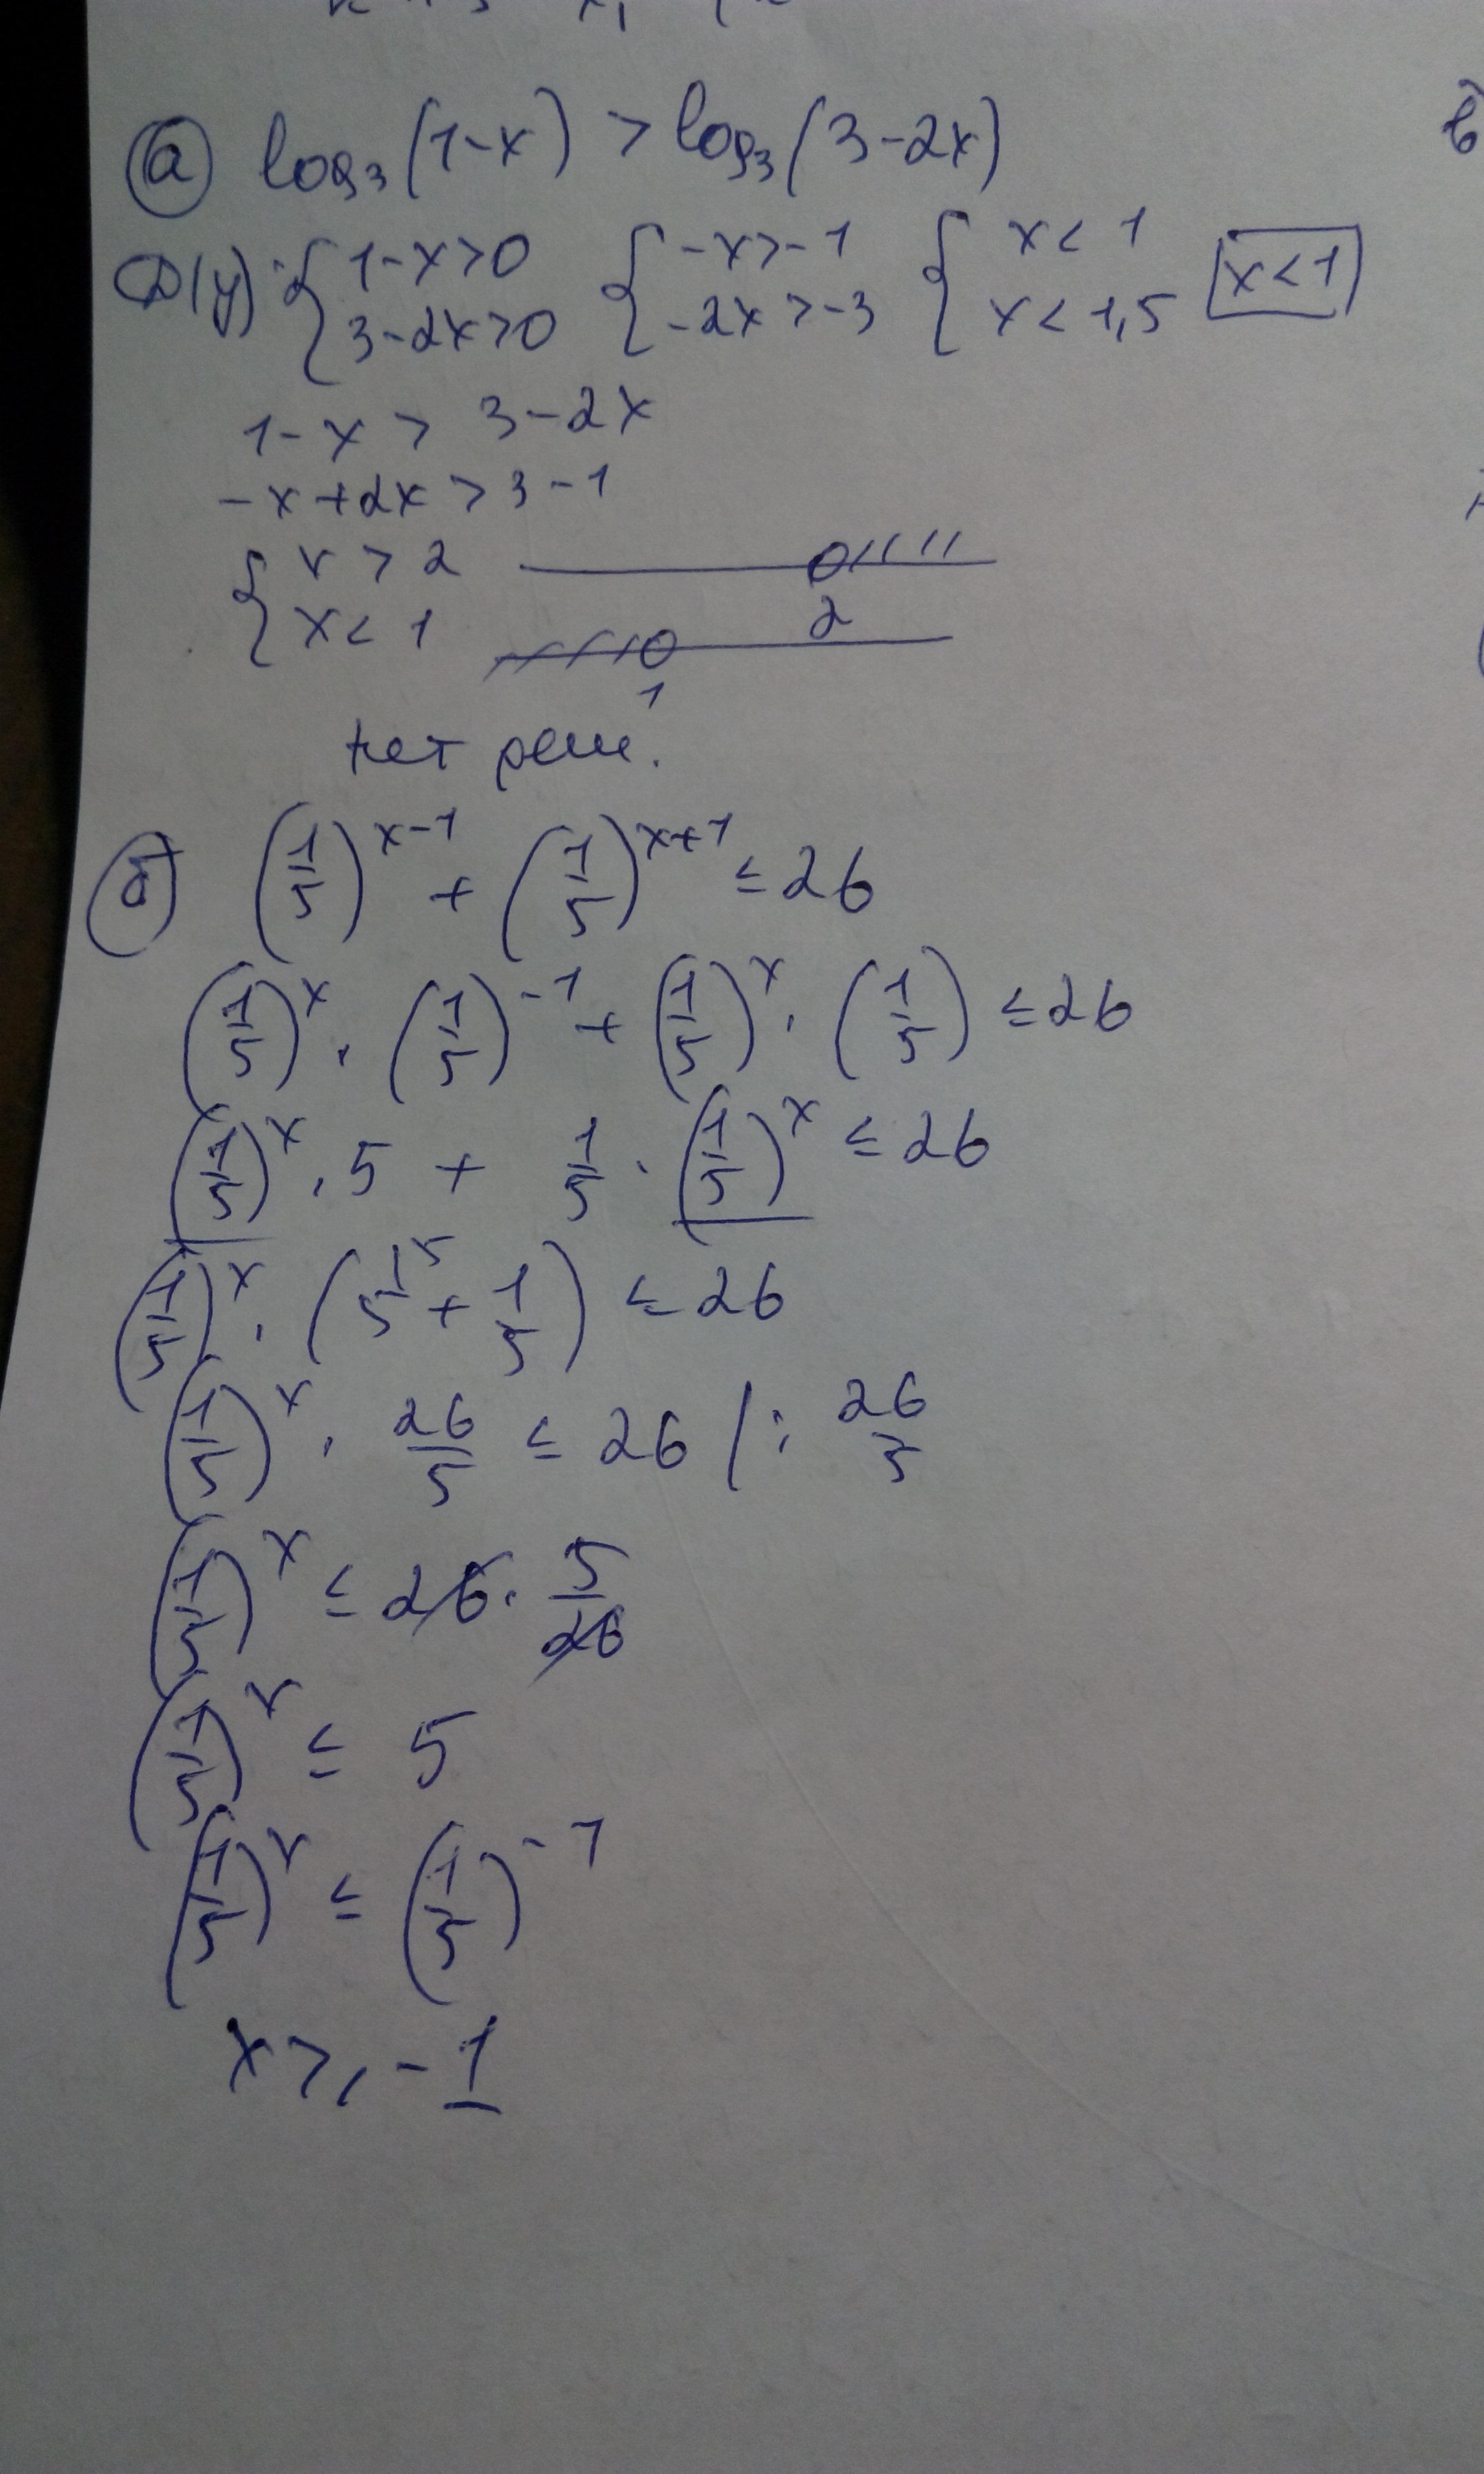 а) log₃(1-x) > log₃(3-2x)
D(y): { 1-x>0 3-2x>0 { -x>-1 -2x>-3 { x<1 x<1,5 x<1
1-x > 3-2x
-x+2x > 3-1
{ x > 2 x < 1
2
1
нет реш.
б) (1/5)^(x-1) + (1/5)^(x+1) ≤ 26
(1/5)^x · (1/5)^(-1) + (1/5)^x · (1/5) ≤ 26
(1/5)^x · 5 + 1/5 · (1/5)^x ≤ 26
(1/5)^x · (5^(\5) + 1/5) ≤ 26
(1/5)^x · 26/5 ≤ 26 | : 26/5
(1/5)^x ≤ 26 · 5/26
(1/5)^x ≤ 5
(1/5)^x ≤ (1/5)^(-1)
x ≥ -1